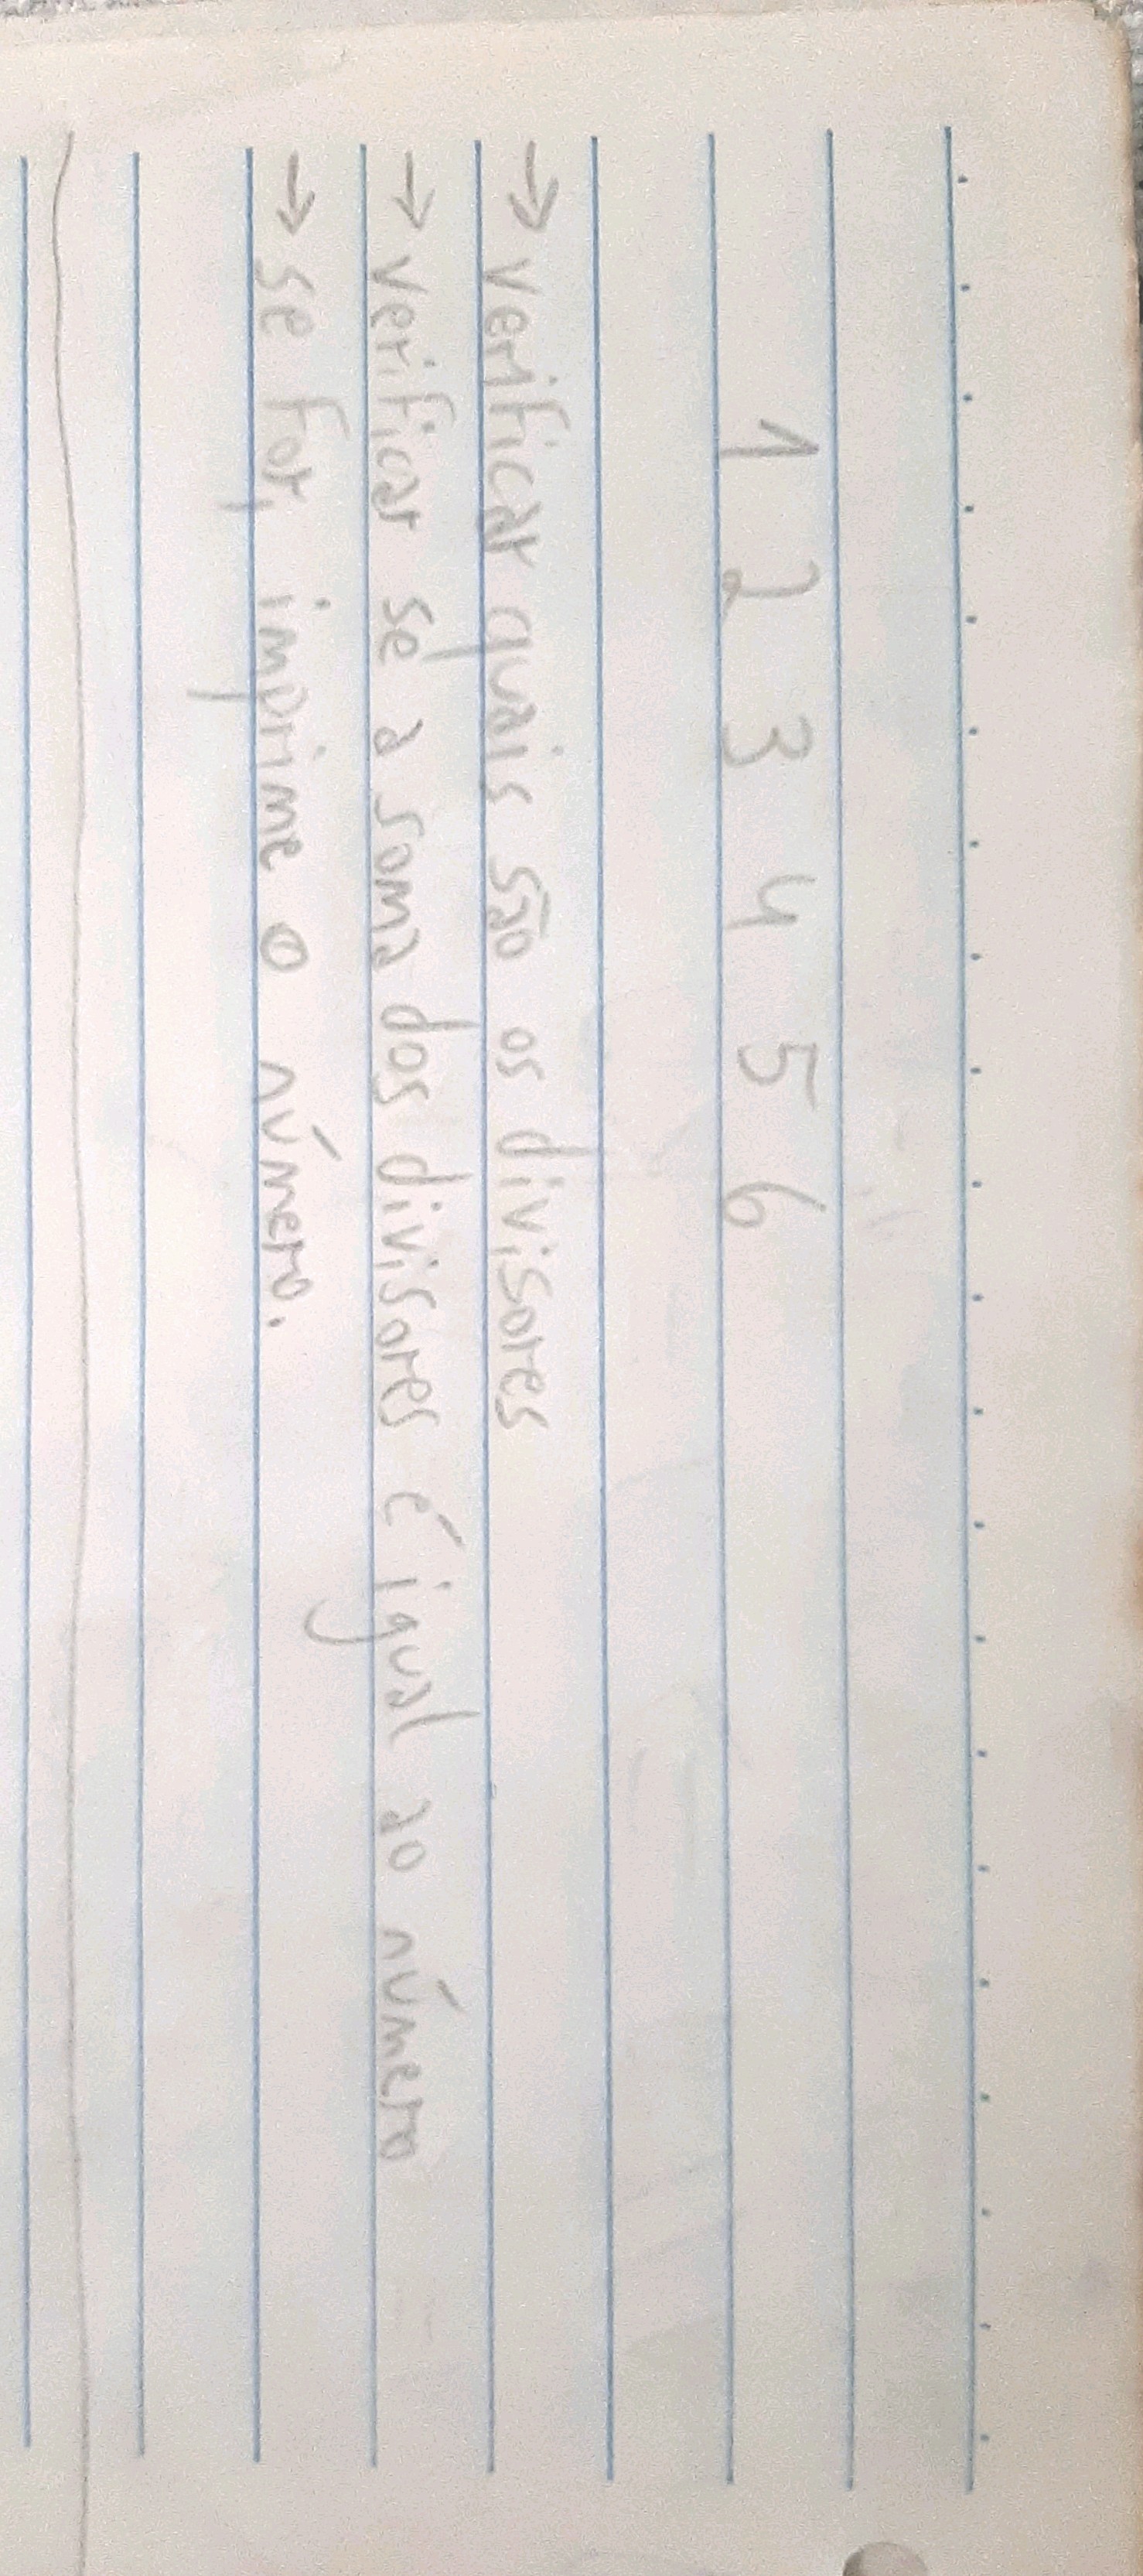 1 2 3 4 5 6
→ verificar quais são os divisores
→ verificar se a soma dos divisores é igual ao número
→ se for, imprime o número.